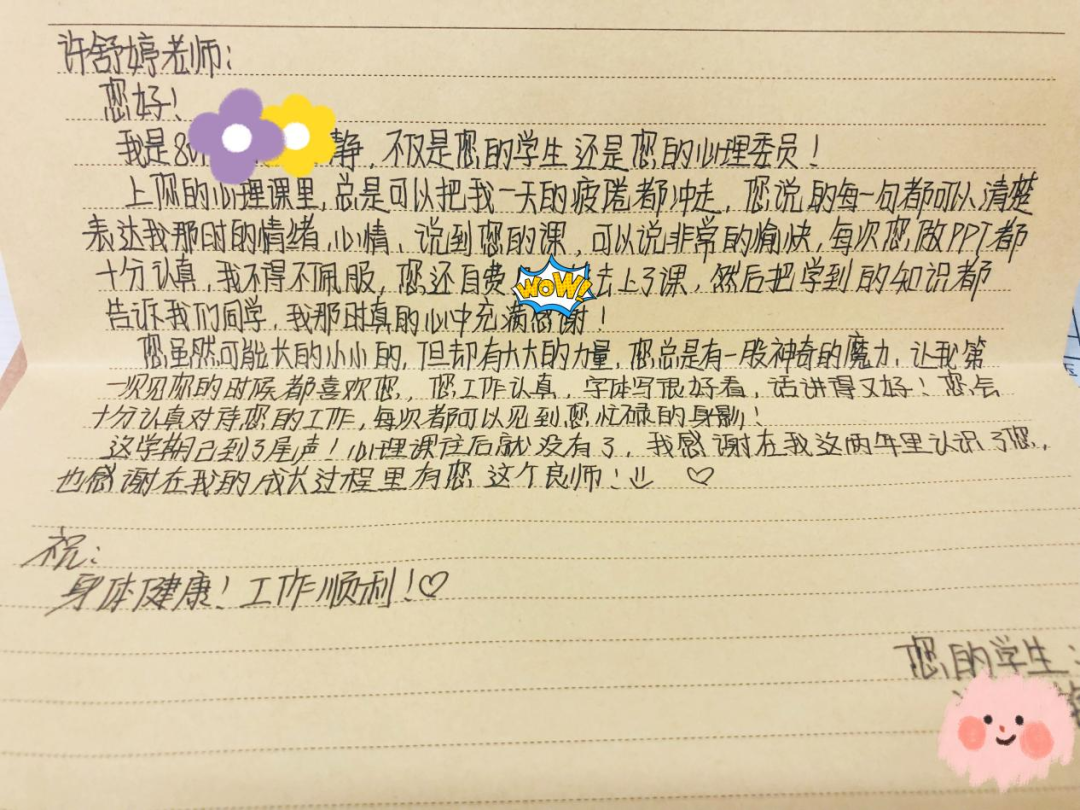 许舒婷老师:
您好!
我是80 静,不仅是您的学生还是您的心理委员!
上您的心理课里,总是可以把我一天的疲惫都冲走,您说的每一句都可以清楚
表达我那时的情绪、心情、说到您的课,可以说非常的愉快,每次您做PPT都
十分认真,我不得不佩服,您还自费 WOW! 去上了课,然后把学到的知识都
告诉我们同学,我那时真的心中充满感谢!
您虽然可能长的小小的,但却有大大的力量,您总是有一股神奇的魔力,让我第
一次见您的时候都喜欢您,您工作认真,字体写很好看,话讲得又好!您会
十分认真对待您的工作,每次都可以见到您忙碌的身影!
这学期已到了尾声!心理课往后就没有了,我感谢在我这两年里认识了您,
也感谢在我的成长过程里有您这个良师!
祝:
身体健康!工作顺利!♡
您的学生: